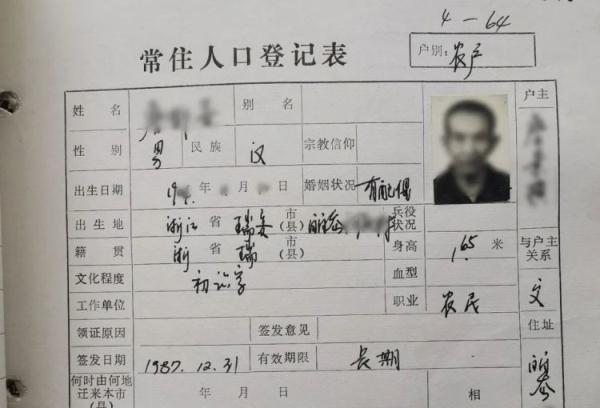 4-64
常住人口登记表
户别: 农户
姓名 别名 户主
性别 男 民族 汉 宗教信仰
出生日期 19 年 月 日 婚姻状况 有配偶
出生地 浙江 省 瑞安 市(县) 兵役状况
籍贯 浙 省 瑞 市(县) 身高 165 米 与户主关系
文化程度 初识字 血型 父
工作单位 职业 农民
领证原因 签发意见 住址
签发日期 1987.12.31 有效期限 长期
何时由何地迁来本市(县) 年 月 日 相